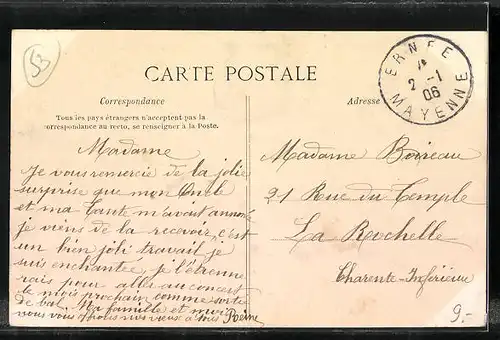 53
CARTE POSTALE
Correspondance
Tous les pays étrangers n'acceptent pas la
correspondance au recto, se renseigner à la Poste.
Adresse
ERNÉE
2 -1
06
MAYENNE
Madame
Je vous remercie de la jolie
surprise que mon Oncle
et ma Tante m'avait annoncé
je viens de la recevoir, c'est
un bien joli travail je
suis enchantée, je l'étrenne
rais pour aller au concert
le mois prochain comme sortie
de bal. Ma famille et moi
nous vous offrons nos vœux à tous Reine
Madame Boireau
21 Rue du Temple
La Rochelle
Charente-Inférieure
9.-